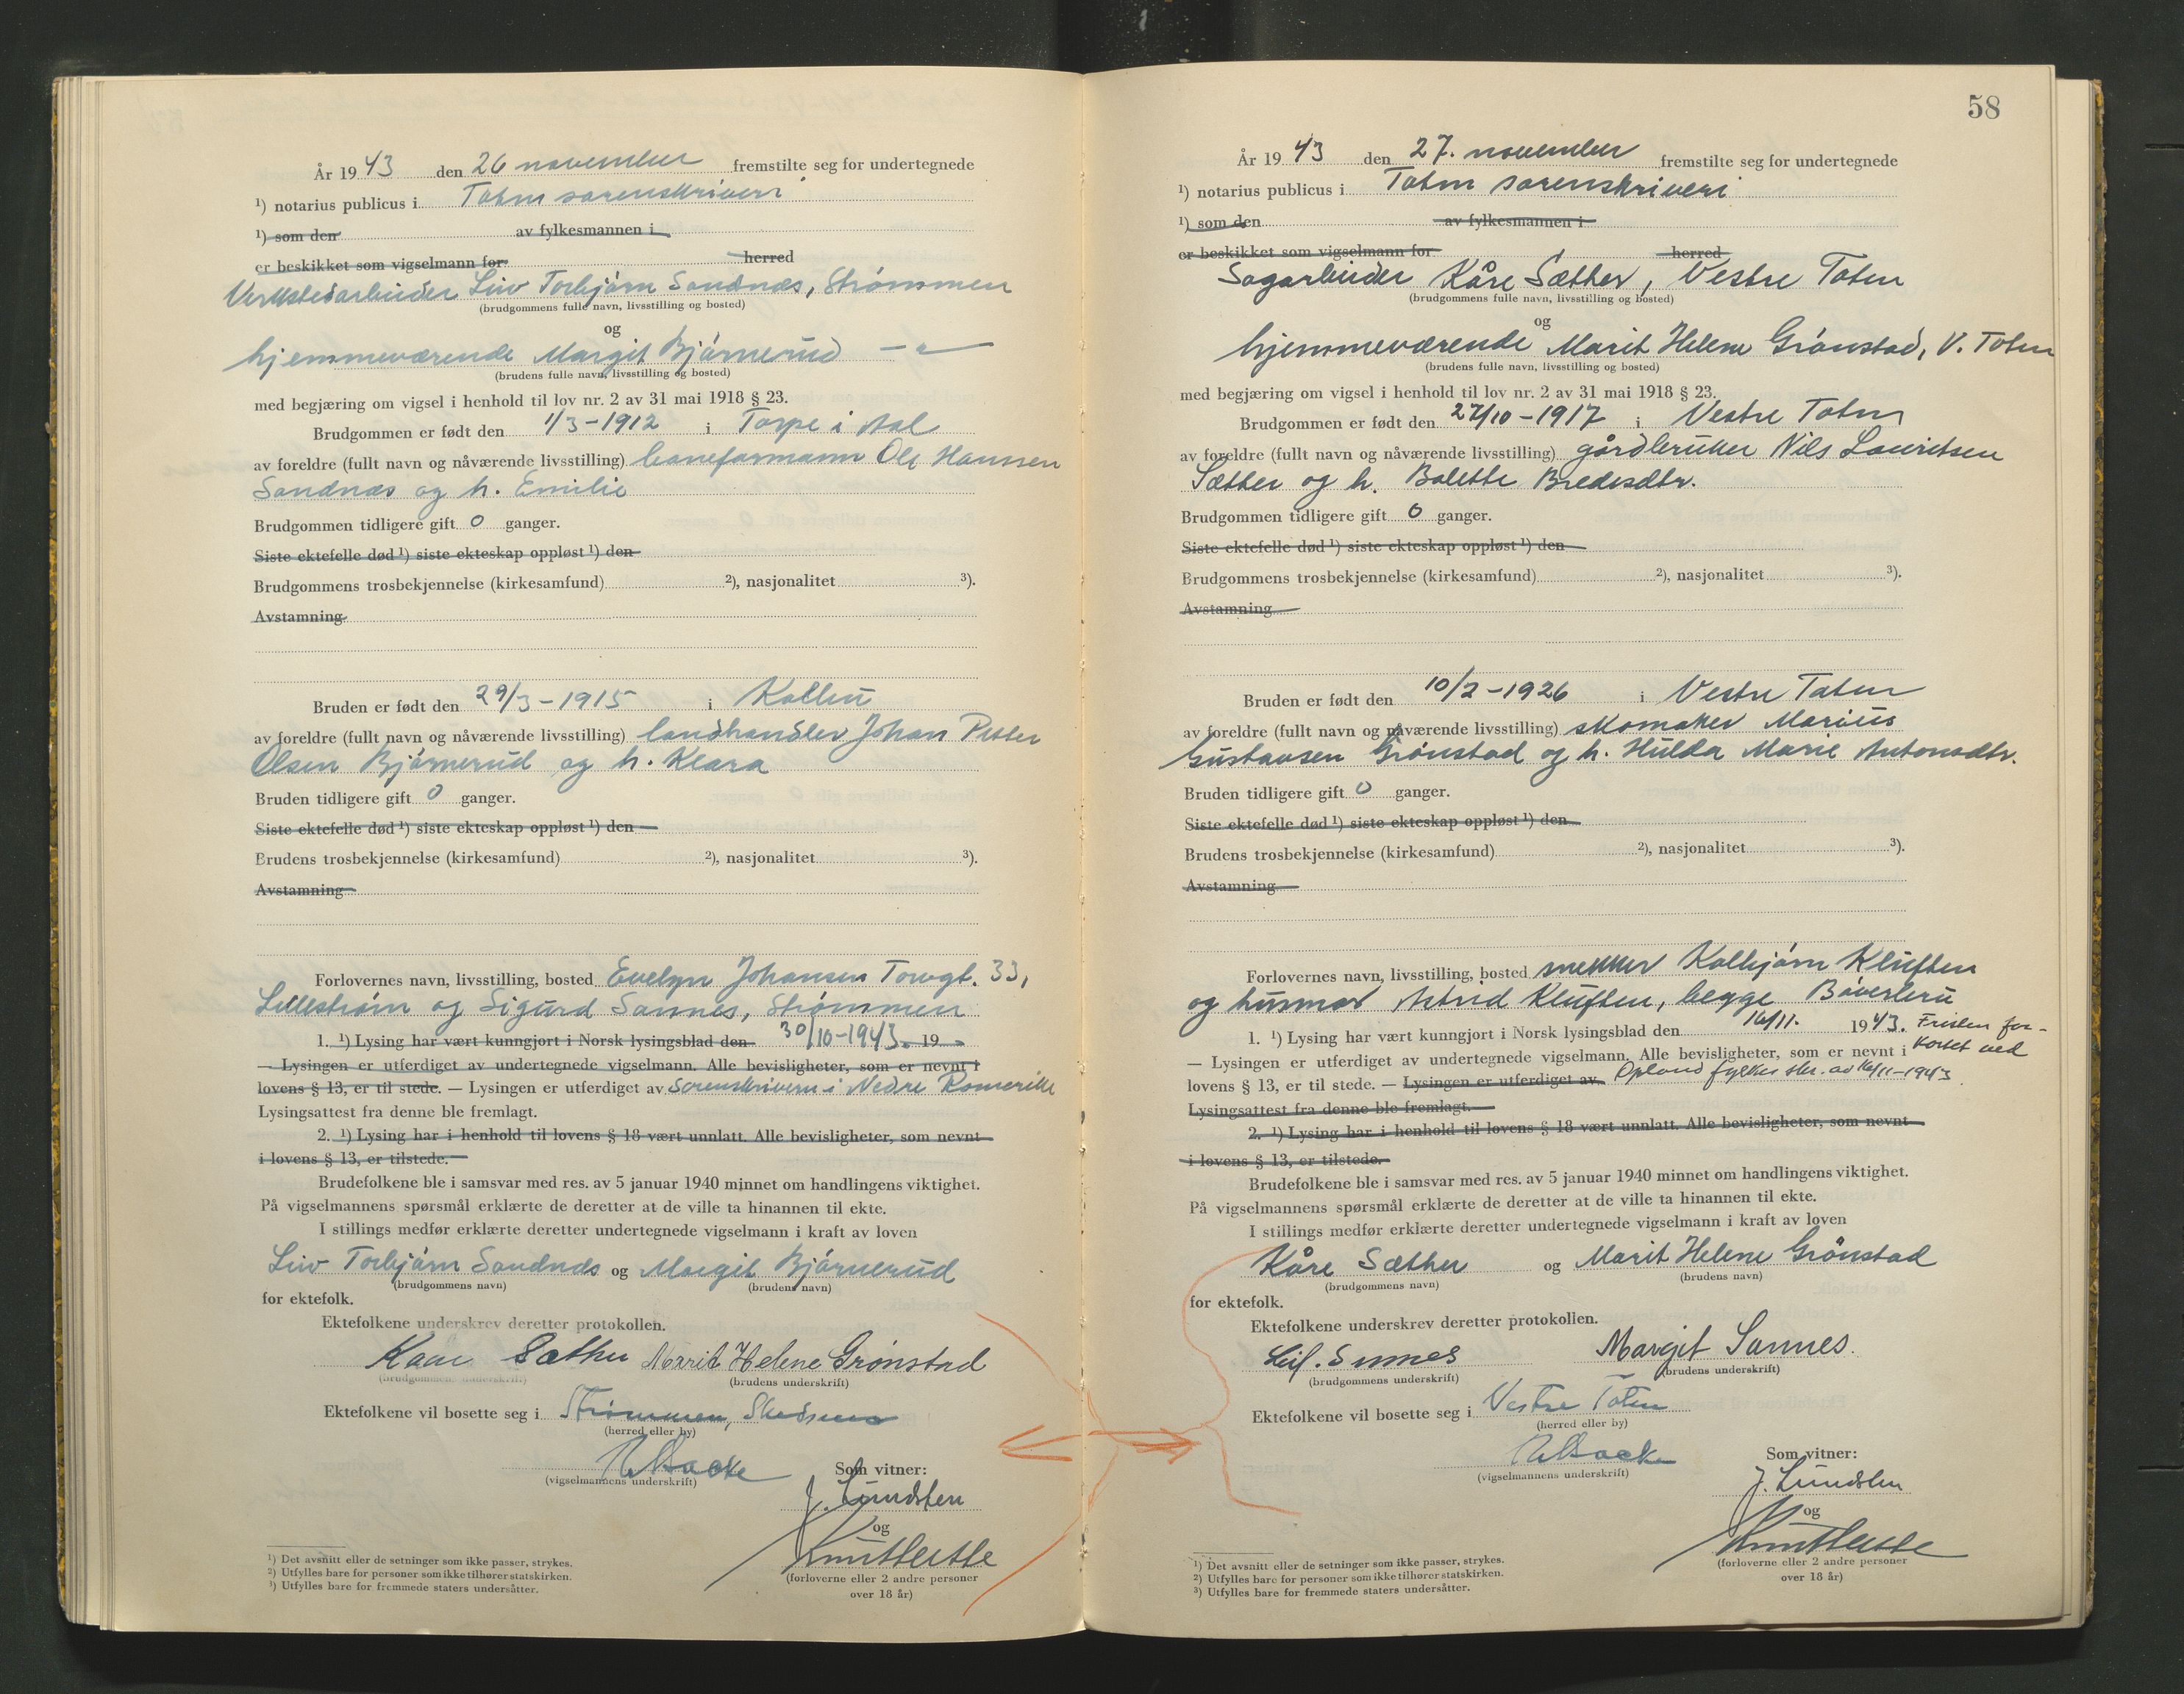 År 1943 den 26 november fremstilte seg for undertegnede
¹) notarius publicus i Toten sorenskriveri
¹) som den av fylkesmannen i
er beskikket som vigselmann for herred
Verkstedarbeider Leiv Torbjørn Sandnæs, Strømmen
(brudgommens fulle navn, livsstilling og bosted)
og
hjemmeværende Margit Bjørnerud
(brudens fulle navn, livsstilling og bosted)
med begjæring om vigsel i henhold til lov nr. 2 av 31 mai 1918 § 23.
Brudgommen er født den 1/3-1912 i Torpe i Aal
av foreldre (fullt navn og nåværende livsstilling) baneformann Ole Hanssen
Sandnæs og h. Emilie
Brudgommen tidligere gift 0 ganger.
Siste ektefelle død ¹) siste ekteskap oppløst ¹) den
Brudgommens trosbekjennelse (kirkesamfund) ²), nasjonalitet ³).
Avstamning
Bruden er født den 29/3-1915 i Kolbu
av foreldre (fullt navn og nåværende livsstilling) landhandler Johan Petter
Olsen Bjørnerud og h. Klara
Bruden tidligere gift 0 ganger.
Siste ektefelle død ¹) siste ekteskap oppløst ¹) den
Brudens trosbekjennelse (kirkesamfund) ²), nasjonalitet ³).
Avstamning
Forlovernes navn, livsstilling, bosted Evelyn Johansen Torvgt. 33,
Lillestrøm og Sigurd Sannes, Strømmen
1. ¹) Lysing har vært kunngjort i Norsk lysingsblad den 30/10-1943. 19
— Lysingen er utferdiget av undertegnede vigselmann. Alle bevisligheter, som er nevnt i
lovens § 13, er til stede. — Lysingen er utferdiget av Sorenskriveren i Nedre Romerike
Lysingsattest fra denne ble fremlagt.
2. ¹) Lysing har i henhold til lovens § 18 vært unnlatt. Alle bevisligheter, som nevnt
i lovens § 13, er tilstede.
Brudefolkene ble i samsvar med res. av 5 januar 1940 minnet om handlingens viktighet.
På vigselmannens spørsmål erklærte de deretter at de ville ta hinannen til ekte.
I stillings medfør erklærte deretter undertegnede vigselmann i kraft av loven
Leiv Torbjørn Sandnæs og Margit Bjørnerud
(brudgommens navn) (brudens navn)
for ektefolk.
Ektefolkene underskrev deretter protokollen.
Kåre Sæther Marit Helene Grønstad
(brudgommens underskrift) (brudens underskrift)
Ektefolkene vil bosette seg i Strømmen, Skedsmo
(herred eller by)
(vigselmannens underskrift) Som vitner:
J. Lundsten
og
(forloverne eller 2 andre personer
over 18 år)
¹) Det avsnitt eller de setninger som ikke passer, strykes.
²) Utfylles bare for personer som ikke tilhører statskirken.
³) Utfylles bare for fremmede staters undersåtter.
58
År 1943 den 27. november fremstilte seg for undertegnede
¹) notarius publicus i Toten sorenskriveri
¹) som den av fylkesmannen i
er beskikket som vigselmann for herred
Sagarbeider Kåre Sæther, Vestre Toten
(brudgommens fulle navn, livsstilling og bosted)
og
hjemmeværende Marit Helene Grønstad, V. Toten
(brudens fulle navn, livsstilling og bosted)
med begjæring om vigsel i henhold til lov nr. 2 av 31 mai 1918 § 23.
Brudgommen er født den 27/10-1917 i Vestre Toten
av foreldre (fullt navn og nåværende livsstilling) gårdbruker Nils Lauritsen
Sæther og h. Bolette Bredesdtr.
Brudgommen tidligere gift 0 ganger.
Siste ektefelle død ¹) siste ekteskap oppløst ¹) den
Brudgommens trosbekjennelse (kirkesamfund) ²), nasjonalitet ³).
Avstamning
Bruden er født den 10/2-1926 i Vestre Toten
av foreldre (fullt navn og nåværende livsstilling) skomaker Marius
Gustavsen Grønstad og h. Hulda Marie Antonsdtr.
Bruden tidligere gift 0 ganger.
Siste ektefelle død ¹) siste ekteskap oppløst ¹) den
Brudens trosbekjennelse (kirkesamfund) ²), nasjonalitet ³).
Avstamning
Forlovernes navn, livsstilling, bosted snekker Kolbjørn Kluften
og husmor Astrid Kluften, begge Bøverbru
1. ¹) Lysing har vært kunngjort i Norsk lysingsblad den 16/11. 1943. Fristen for-
— Lysingen er utferdiget av undertegnede vigselmann. Alle bevisligheter, som er nevnt i kortet ved
lovens § 13, er til stede. — Lysingen er utferdiget av Opland fylkes skr. av 16/11-1943
Lysingsattest fra denne ble fremlagt.
2. ¹) Lysing har i henhold til lovens § 18 vært unnlatt. Alle bevisligheter, som nevnt
i lovens § 13, er tilstede.
Brudefolkene ble i samsvar med res. av 5 januar 1940 minnet om handlingens viktighet.
På vigselmannens spørsmål erklærte de deretter at de ville ta hinannen til ekte.
I stillings medfør erklærte deretter undertegnede vigselmann i kraft av loven
Kåre Sæther og Marit Helene Grønstad
(brudgommens navn) (brudens navn)
for ektefolk.
Ektefolkene underskrev deretter protokollen.
Leif. Sannes Margit Sannes.
(brudgommens underskrift) (brudens underskrift)
Ektefolkene vil bosette seg i Vestre Toten
(herred eller by)
(vigselmannens underskrift) Som vitner:
J. Lundsten
og
(forloverne eller 2 andre personer
over 18 år)
¹) Det avsnitt eller de setninger som ikke passer, strykes.
²) Utfylles bare for personer som ikke tilhører statskirken.
³) Utfylles bare for fremmede staters undersåtter.